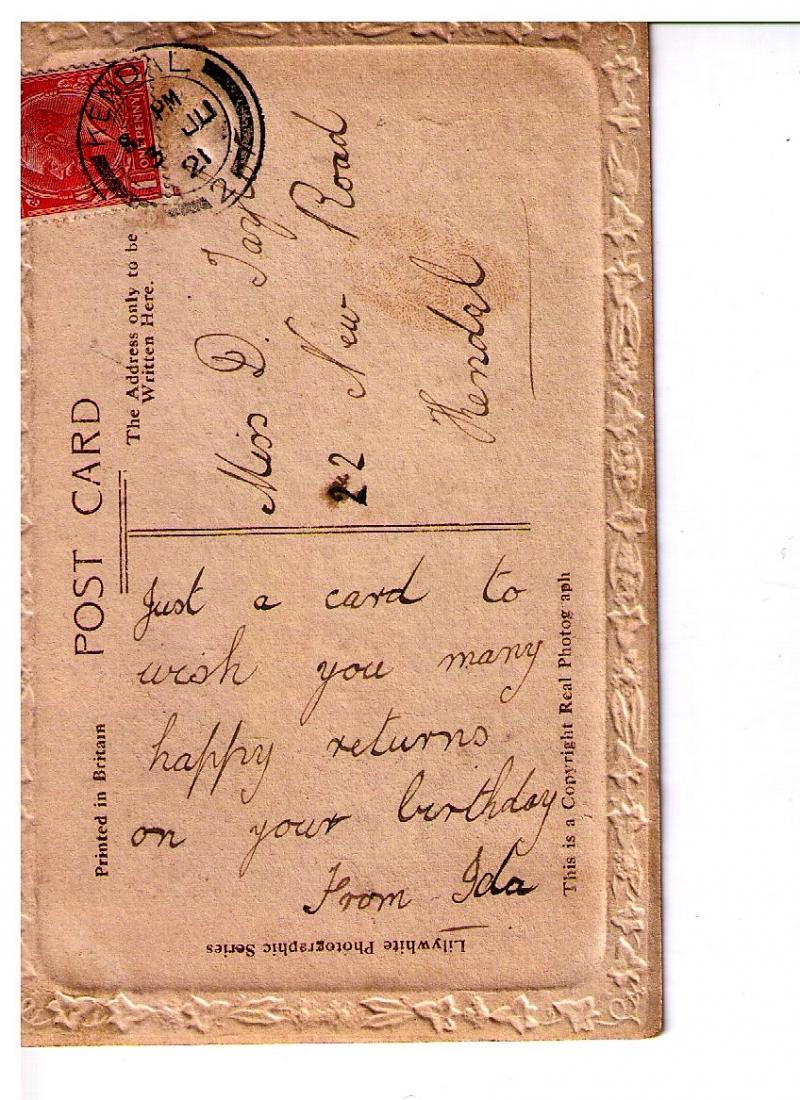 Printed in Britain
POST CARD
The Address only to be
Written Here.
Just a card to
wish you many
happy returns
on your birthday
From Ida
Miss D.
22 New Road
Kendal
KENDAL
PM
3 JL
21
ONE PENNY
1
This is a Copyright Real Photog aph
Lilywhite Photographic Series